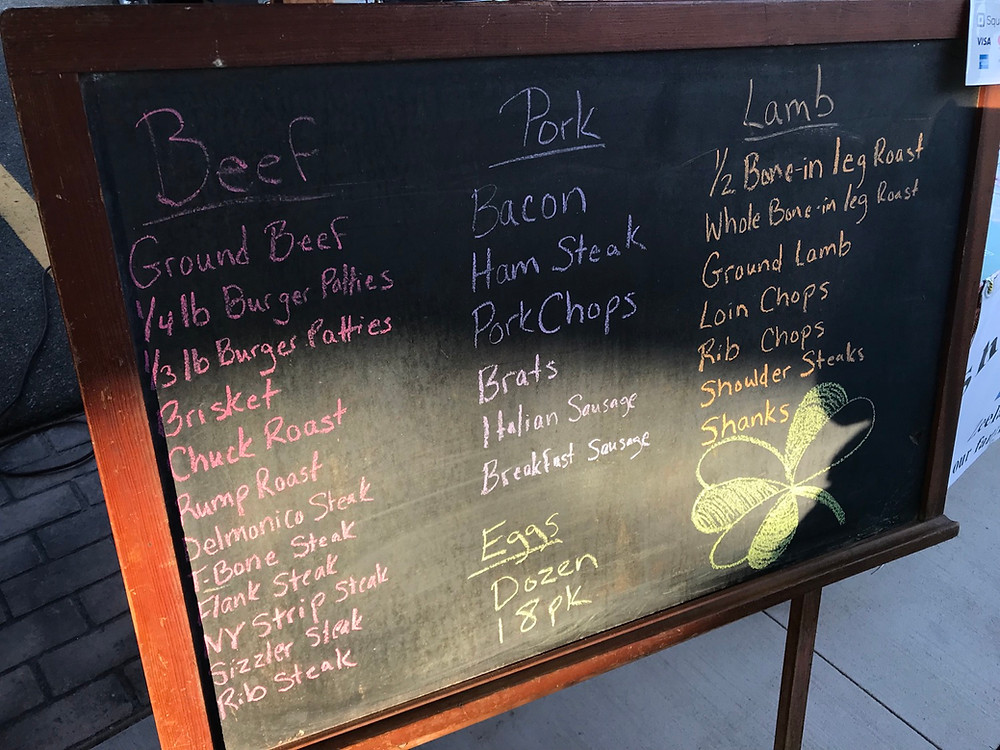 Beef
Ground Beef
1/4 lb Burger Patties
1/3 lb Burger Patties
Brisket
Chuck Roast
Rump Roast
Delmonico Steak
T-Bone Steak
Flank Steak
NY Strip Steak
Sizzler Steak
Rib Steak
Pork
Bacon
Ham Steak
Pork Chops
Brats
Italian Sausage
Breakfast Sausage
Eggs
Dozen
18 pk
Lamb
1/2 Bone-in leg Roast
Whole Bone-in leg Roast
Ground Lamb
Loin Chops
Rib Chops
Shoulder Steaks
Shanks
VISA
our